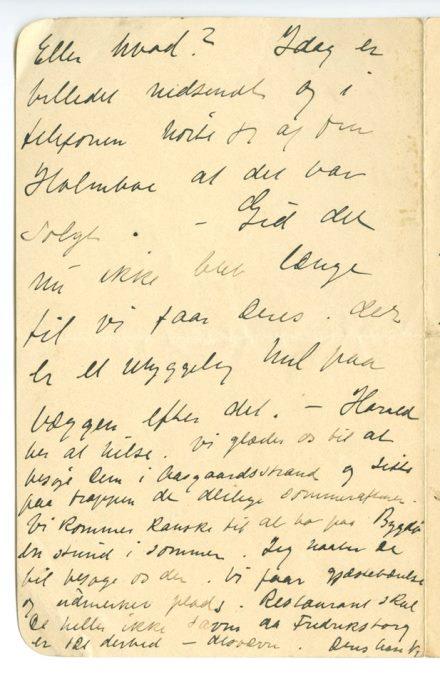 Eller hvad? Idag er
billedet nedsendt og i
telefonen hørte jeg af fru
Holmboe at det var
solgt. – Gid det
nu ikke blir længe
til vi faar Deres. Der
er et uhyggelig hul paa
væggen efter det. – Harald
ber at hilse. Vi glæder os til at
besøge Dem i Aasgaardsstrand og sitte
paa trappen de deilige sommeraftener.
Vi kommer kanske til at bo paa Bygdø
en stund i sommer. Jeg haaber De
vil besøge os der. Vi faar gjæsteværelse
og udmerket plads. Restaurant skal
De heller ikke savne da Fredriksborg
er tæt derved – desværre. Deres